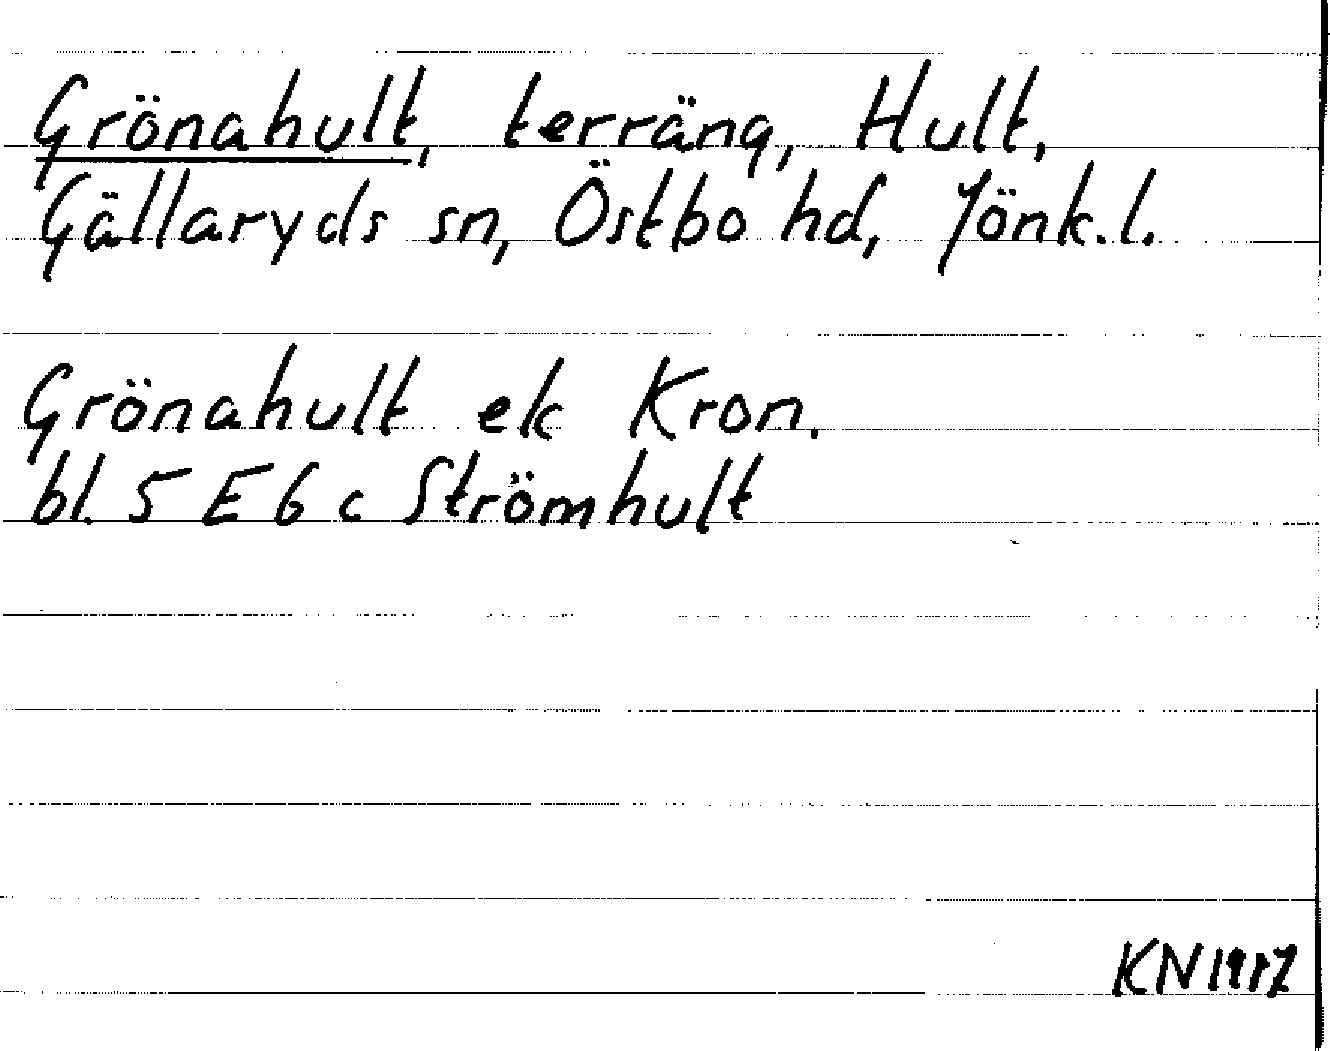 Grönahult, terräng, Hult,
Gällaryds sn, Östbo hd, Jönk.l.
Grönahult ek Kron.
bl. 5 E 6 c Strömhult
KN